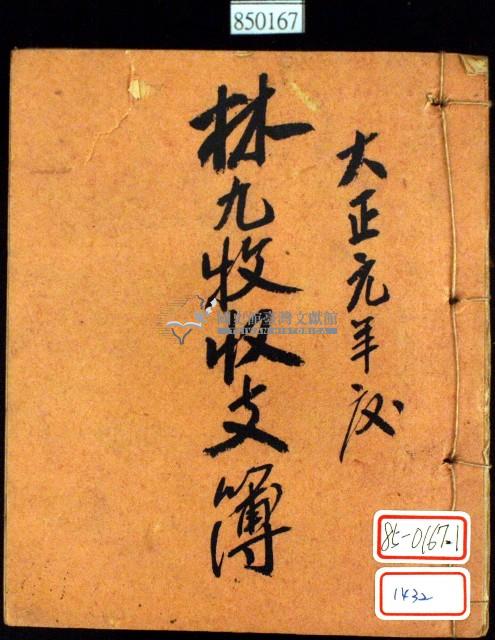 850167
大正元年度
林九牧収支簿
國史館臺灣文獻館
TAIWAN HISTORICA
85-0167-1
1432